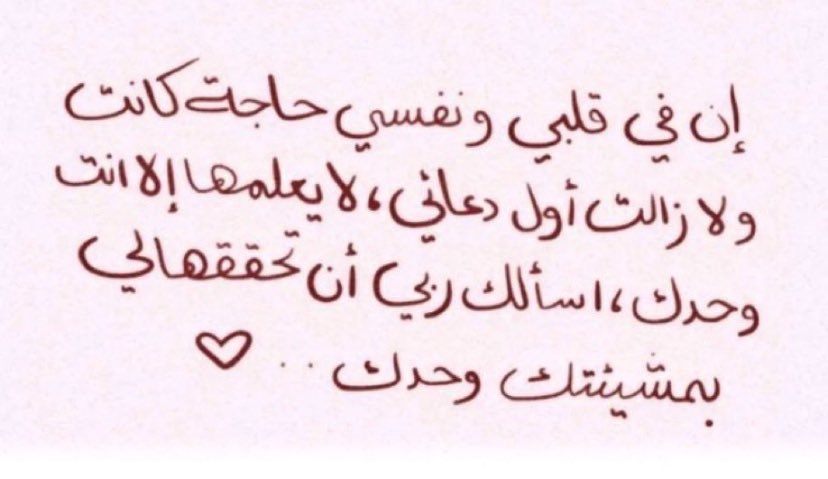 إن في قلبي ونفسي حاجة كانت
ولا زالت أول دعائي، لا يعلمها إلا انت
وحدك، اسألك ربي أن تحققها لي
بمشيئتك وحدك .. ♡